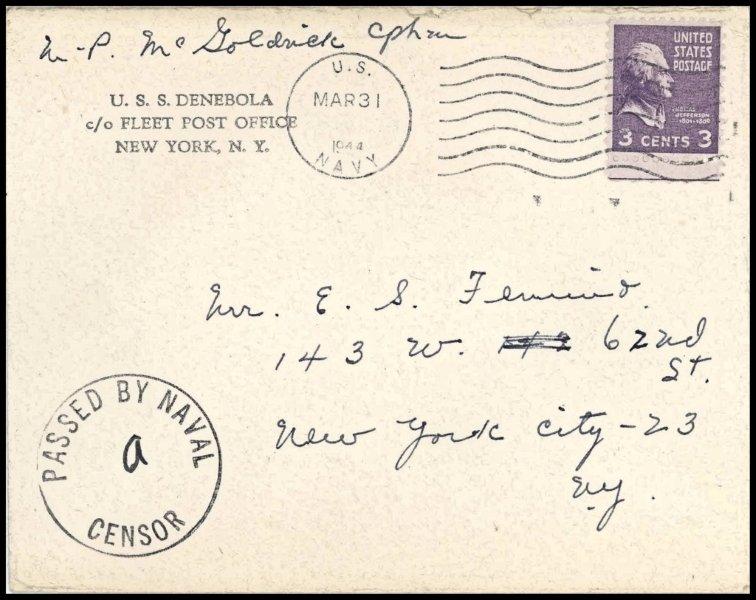 M-P. McGoldrick cphm
U.S.S. DENEBOLA
c/o FLEET POST OFFICE
NEW YORK, N. Y.
U.S.
MAR 31
1944
NAVY
UNITED
STATES
POSTAGE
THOMAS
JEFFERSON
1801-1809
3 CENTS 3
Mr. E. S.
143 W. 62nd
St.
New York City-23
NY.
PASSED BY NAVAL
a
CENSOR